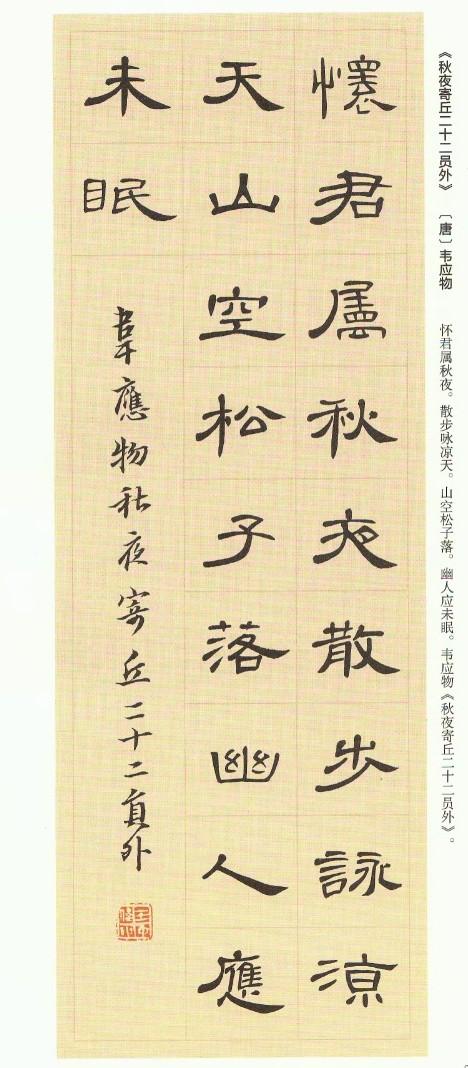 《秋夜寄丘二十二员外》 〔唐〕韦应物 怀君属秋夜。散步咏凉天。山空松子落。幽人应未眠。韦应物《秋夜寄丘二十二员外》。
懷君属秋夜散步詠涼
天山空松子落幽人應
未眠
韋應物秋夜寄丘二十二員外